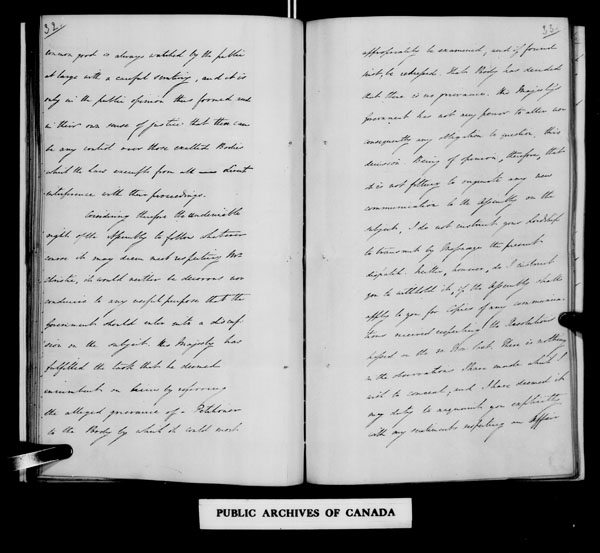 32.
common good is always watched by the public
at large with a careful scrutiny, and it is
only in the public opinion thus formed and
in their own sense of justice that there can
be any control over those exalted Bodies
which the Law exempts from all direct
interference with their proceedings.
Considering therefore the undeniable
right of the Assembly to follow whatever
course it may deem meet respecting Mr
Christie, it would neither be decorous nor
conducive to any useful purpose that the
Government should enter into a discus-
sion on the subject. His Majesty has
fulfilled the task that he deemed
incumbent on him by referring
the alleged grievance of a Petitioner
to the Body by which it could most
33.
appropriately be examined, and if found
just, be redressed. That Body has decided
that there is no grievance. His Majesty's
Government has not any power to alter nor
consequently any obligation to question, this
decision. Being of opinion, therefore, that
it is not fitting to originate any new
communication to the Assembly on the
subject, I do not instruct your Lordship
to transmit by Message the present
dispatch. Neither, however, do I instruct
you to withhold it, if the Assembly shall
apply to you for Copies of any communica-
tions received respecting the Resolutions
passed on the Inst. There is nothing
in the observations I have made which I
wish to conceal, and I have deemed it
my duty to acquaint you explicitly
with my sentiments respecting an affair
PUBLIC ARCHIVES OF CANADA